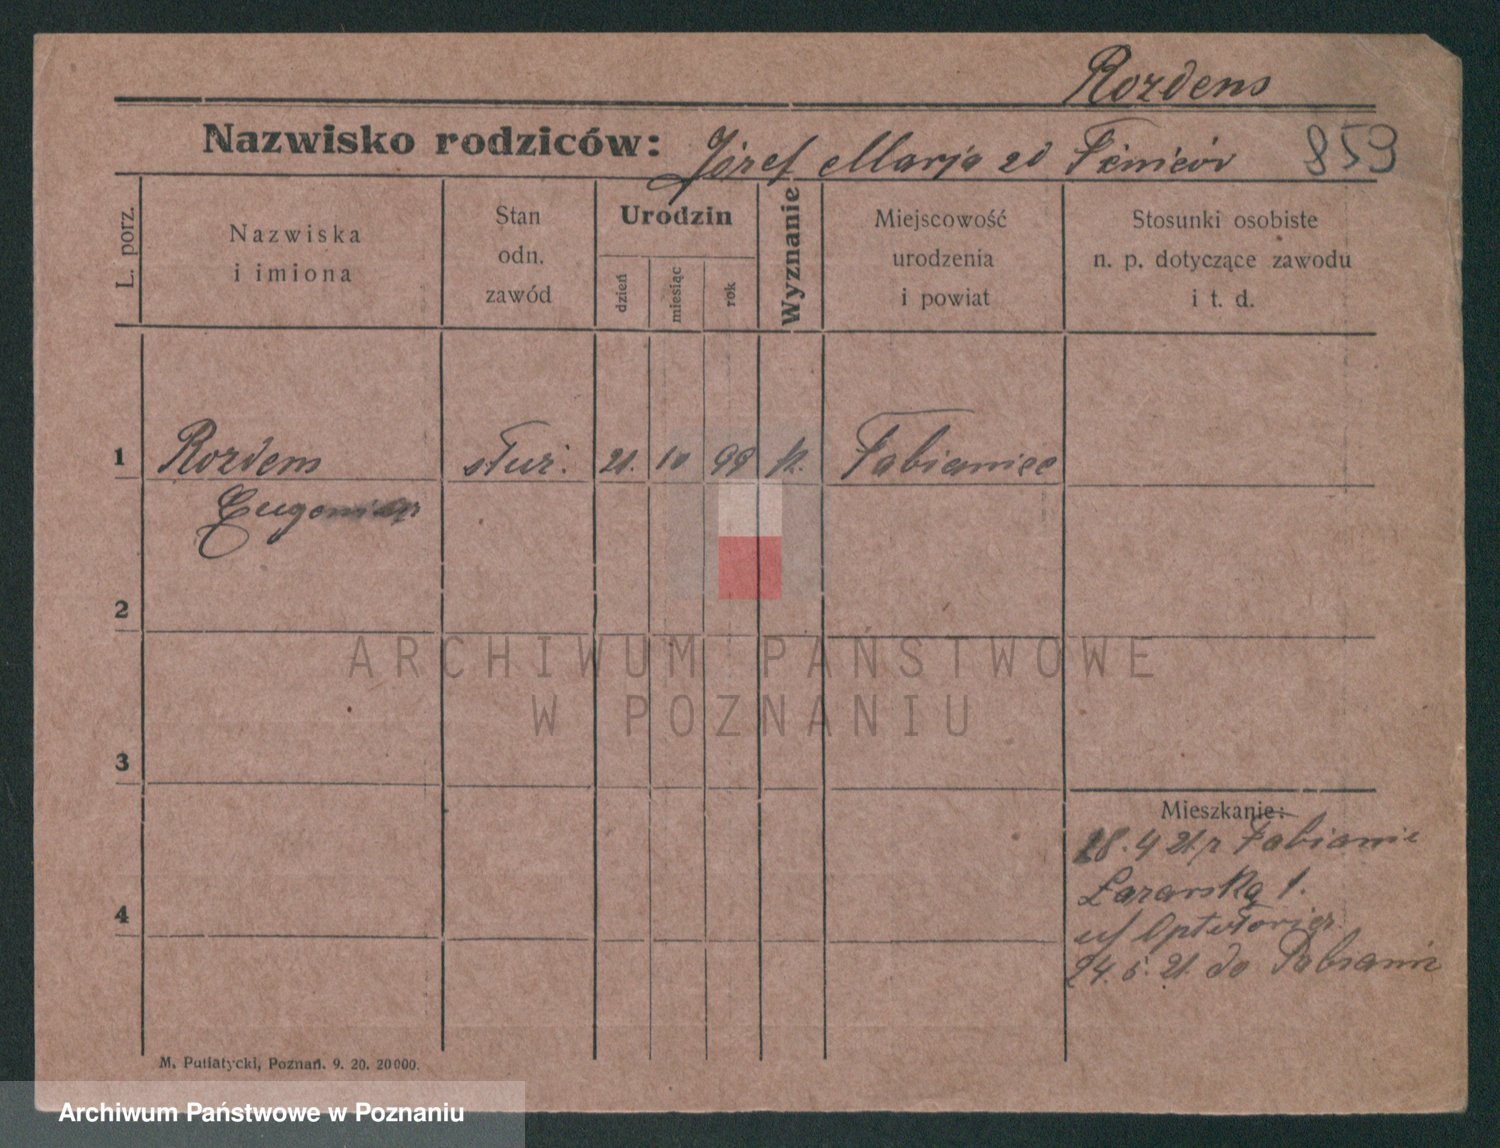 Rozdens
Nazwisko rodziców: Józef Marja zd
859
L. porz.
Nazwiska
i imiona
Stan
odn.
zawód
Urodzin
dzień
miesiąc
rok
Wyznanie
Miejscowość
urodzenia
i powiat
Stosunki osobiste
n. p. dotyczące zawodu
i t. d.
1 Rozdens służ. 21. 10 99 k.
2
3
4
Mieszkanie:
28. 4 21 z
Łazarska 1.
24. 5. 21 do
M. Putiatycki, Poznań. 9. 20. 20000.
ARCHIWUM PAŃSTWOWE
W POZNANIU
Archiwum Państwowe w Poznaniu